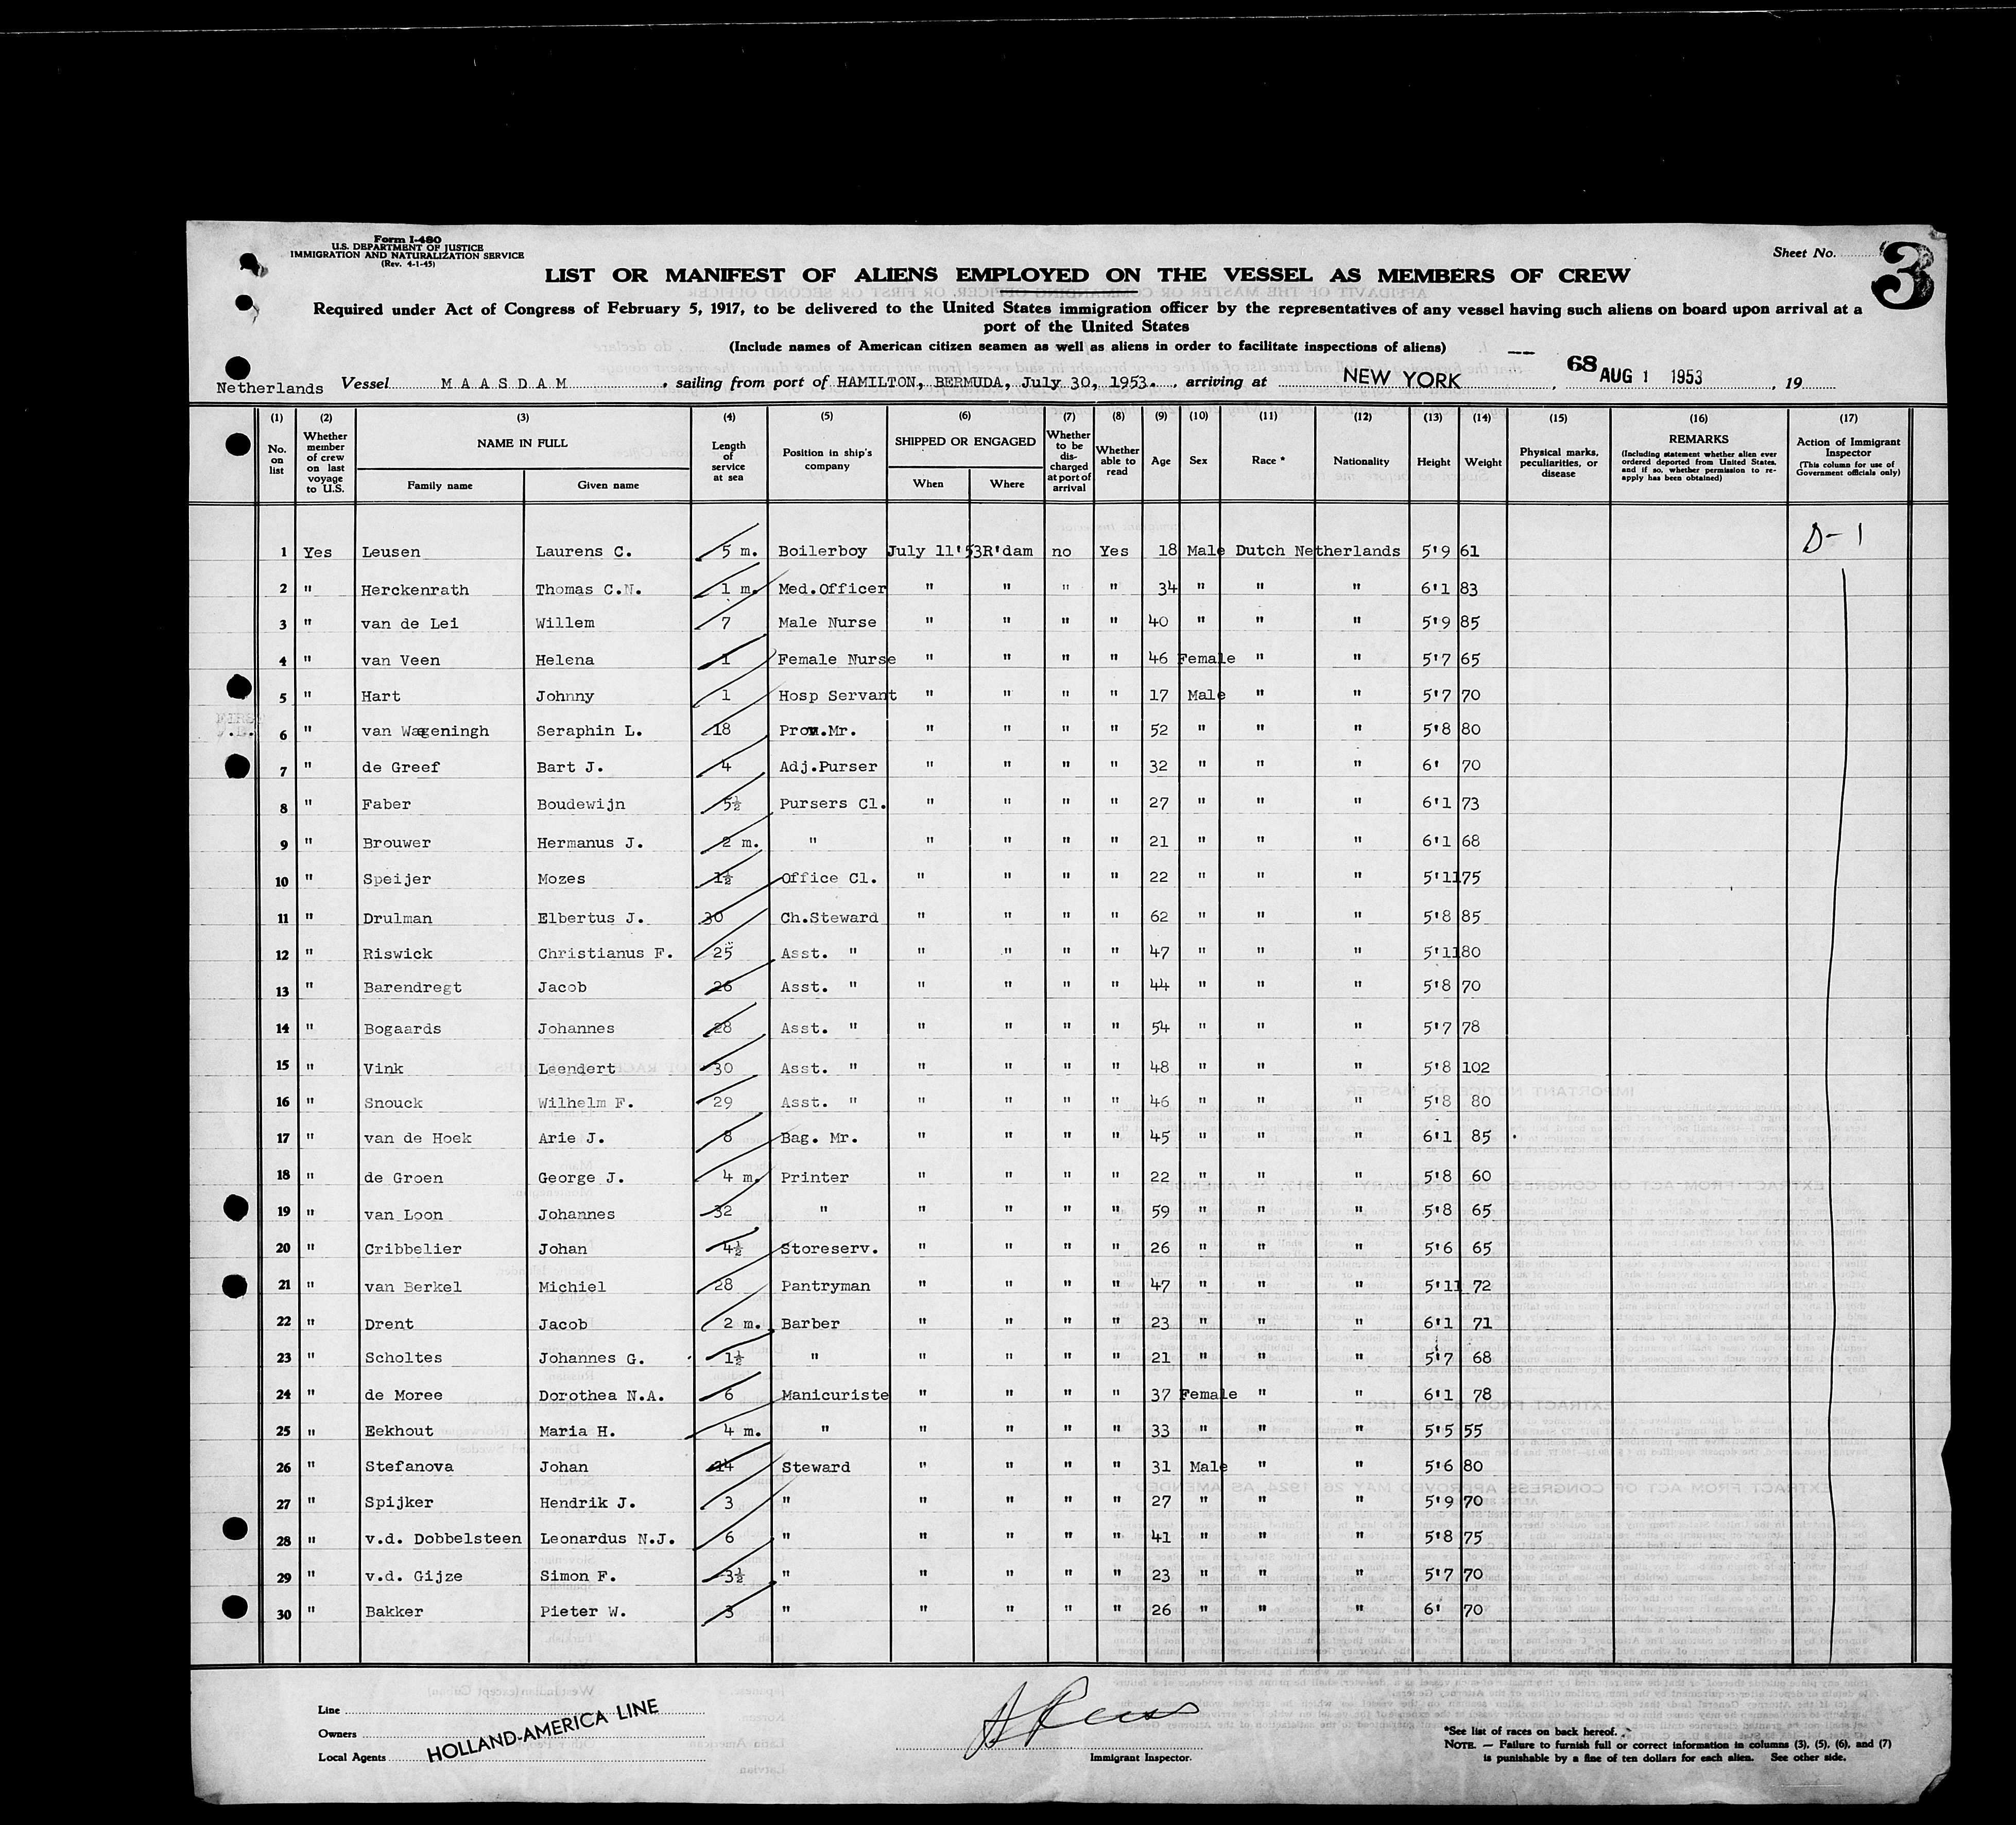 Form I-480
U.S. DEPARTMENT OF JUSTICE
IMMIGRATION AND NATURALIZATION SERVICE
(Rev. 4-1-45)
Sheet No. 3
LIST OR MANIFEST OF ALIENS EMPLOYED ON THE VESSEL AS MEMBERS OF CREW
Required under Act of Congress of February 5, 1917, to be delivered to the United States immigration officer by the representatives of any vessel having such aliens on board upon arrival at a
port of the United States
(Include names of American citizen seamen as well as aliens in order to facilitate inspections of aliens)
68
Netherlands Vessel MAASDAM, sailing from port of HAMILTON, BERMUDA, July 30, 1953., arriving at NEW YORK, AUG 1 1953, 19
(1) No. on list (2) Whether member of crew on last voyage to U.S. (3) NAME IN FULL Family name Given name (4) Length of service at sea (5) Position in ship's company (6) SHIPPED OR ENGAGED When Where (7) Whether to be discharged at port of arrival (8) Whether able to read (9) Age (10) Sex (11) Race * (12) Nationality (13) Height (14) Weight (15) Physical marks, peculiarities, or disease (16) REMARKS (Including statement whether alien ever ordered deported from United States, and if so, whether permission to re-apply has been obtained) (17) Action of Immigrant Inspector (This column for use of Government officials only)
1 Yes Leusen Laurens C. 5 m. Boilerboy July 11'53 R'dam no Yes 18 Male Dutch Netherlands 5'9 61 D-1
2 " Herckenrath Thomas C.N. 1 m. Med.Officer " " " " 34 " " " 6'1 83
3 " van de Lei Willem 7 Male Nurse " " " " 40 " " " 5'9 85
4 " van Veen Helena 1 Female Nurse " " " " 46 Female " " 5'7 65
5 " Hart Johnny 1 Hosp Servant " " " " 17 Male " " 5'7 70
6 " van Wageningh Seraphin L. 18 Prov.Mr. " " " " 52 " " " 5'8 80
7 " de Greef Bart J. 4 Adj.Purser " " " " 32 " " " 6' 70
8 " Faber Boudewijn 5½ Pursers Cl. " " " " 27 " " " 6'1 73
9 " Brouwer Hermanus J. 2 m. " " " " " 21 " " " 6'1 68
10 " Speijer Mozes 1½ Office Cl. " " " " 22 " " " 5'11 75
11 " Drulman Elbertus J. 30 Ch.Steward " " " " 62 " " " 5'8 85
12 " Riswick Christianus F. 25 Asst. " " " " " 47 " " " 5'11 80
13 " Barendregt Jacob 26 Asst. " " " " " 44 " " " 5'8 70
14 " Bogaards Johannes 28 Asst. " " " " " 54 " " " 5'7 78
15 " Vink Leendert 30 Asst. " " " " " 48 " " " 5'8 102
16 " Snouck Wilhelm F. 29 Asst. " " " " " 46 " " " 5'8 80
17 " van de Hoek Arie J. 8 Bag. Mr. " " " " 45 " " " 6'1 85
18 " de Groen George J. 4 m. Printer " " " " 22 " " " 5'8 60
19 " van Loon Johannes 32 " " " " " 59 " " " 5'8 65
20 " Cribbelier Johan 4½ Storeserv. " " " " 26 " " " 5'6 65
21 " van Berkel Michiel 28 Pantryman " " " " 47 " " " 5'11 72
22 " Drent Jacob 2 m. Barber " " " " 23 " " " 6'1 71
23 " Scholtes Johannes G. 1½ " " " " " 21 " " " 5'7 68
24 " de Moree Dorothea N.A. 6 Manicuriste " " " " 37 Female " " 6'1 78
25 " Eekhout Maria H. 4 m. " " " " " 33 " " " 5'5 55
26 " Stefanova Johan 14 Steward " " " " 31 Male " " 5'6 80
27 " Spijker Hendrik J. 3 " " " " " 27 " " " 5'9 70
28 " v.d. Dobbelsteen Leonardus N.J. 6 " " " " " 41 " " " 5'8 75
29 " v.d. Gijze Simon F. 3½ " " " " " 23 " " " 5'7 70
30 " Bakker Pieter W. 3 " " " " " 26 " " " 6' 70
Line
Owners
Local Agents
HOLLAND-AMERICA LINE
Immigrant Inspector.
*See list of races on back hereof.
NOTE. — Failure to furnish full or correct information in columns (3), (5), (6), and (7)
is punishable by a fine of ten dollars for each alien. See other side.